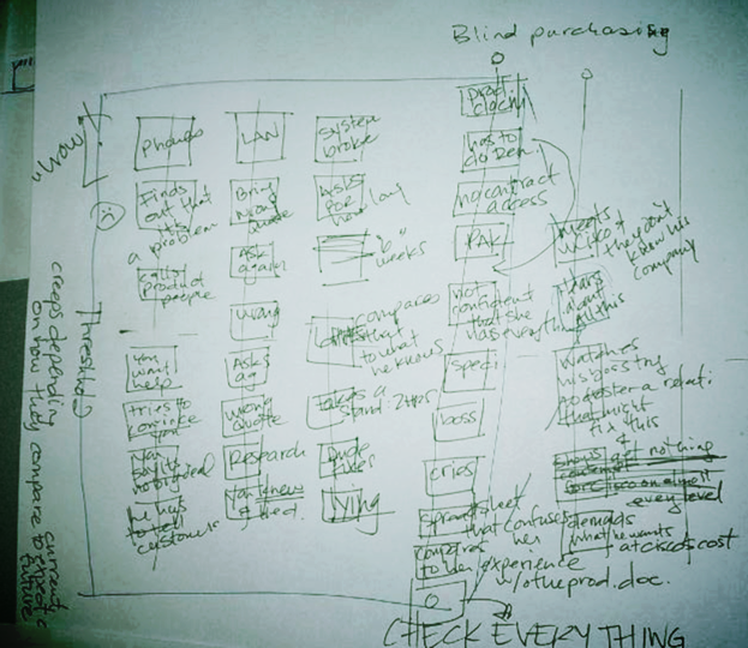 Blind purchasing
"now"
Phones
Finds
out that
it's
a problem
calls
product
people
you
want
help
tries to
convince
you
you
say it's
no big deal
he has
to tell
customer
LAN
Bring
wrong
quote
Ask
again
wrong
Asks
ag
wrong
quote
Research
you knew
& lied.
System
broke
Asks
for
how long
"6"
weeks
compares
that
to what
he knows
Takes a
stand: 2 hrs
Dude
fixes
lying
prod
has to
no contract
access
PAK
not
confident
that she
has everything
spec
boss
cries
spreadsheet
that confuses
her
compares
to her experience
w/ other prod. doc.
CHECK EVERYTHING
meets
they don't
know his
company
all this
watches
his boss try
to foster a relati
that might
fix this
&
shows
get nothing
for cisco on almost
every level
demands
what he wants
at cisco's cost
Threshold
creeps depending
on how they compare to
current
future